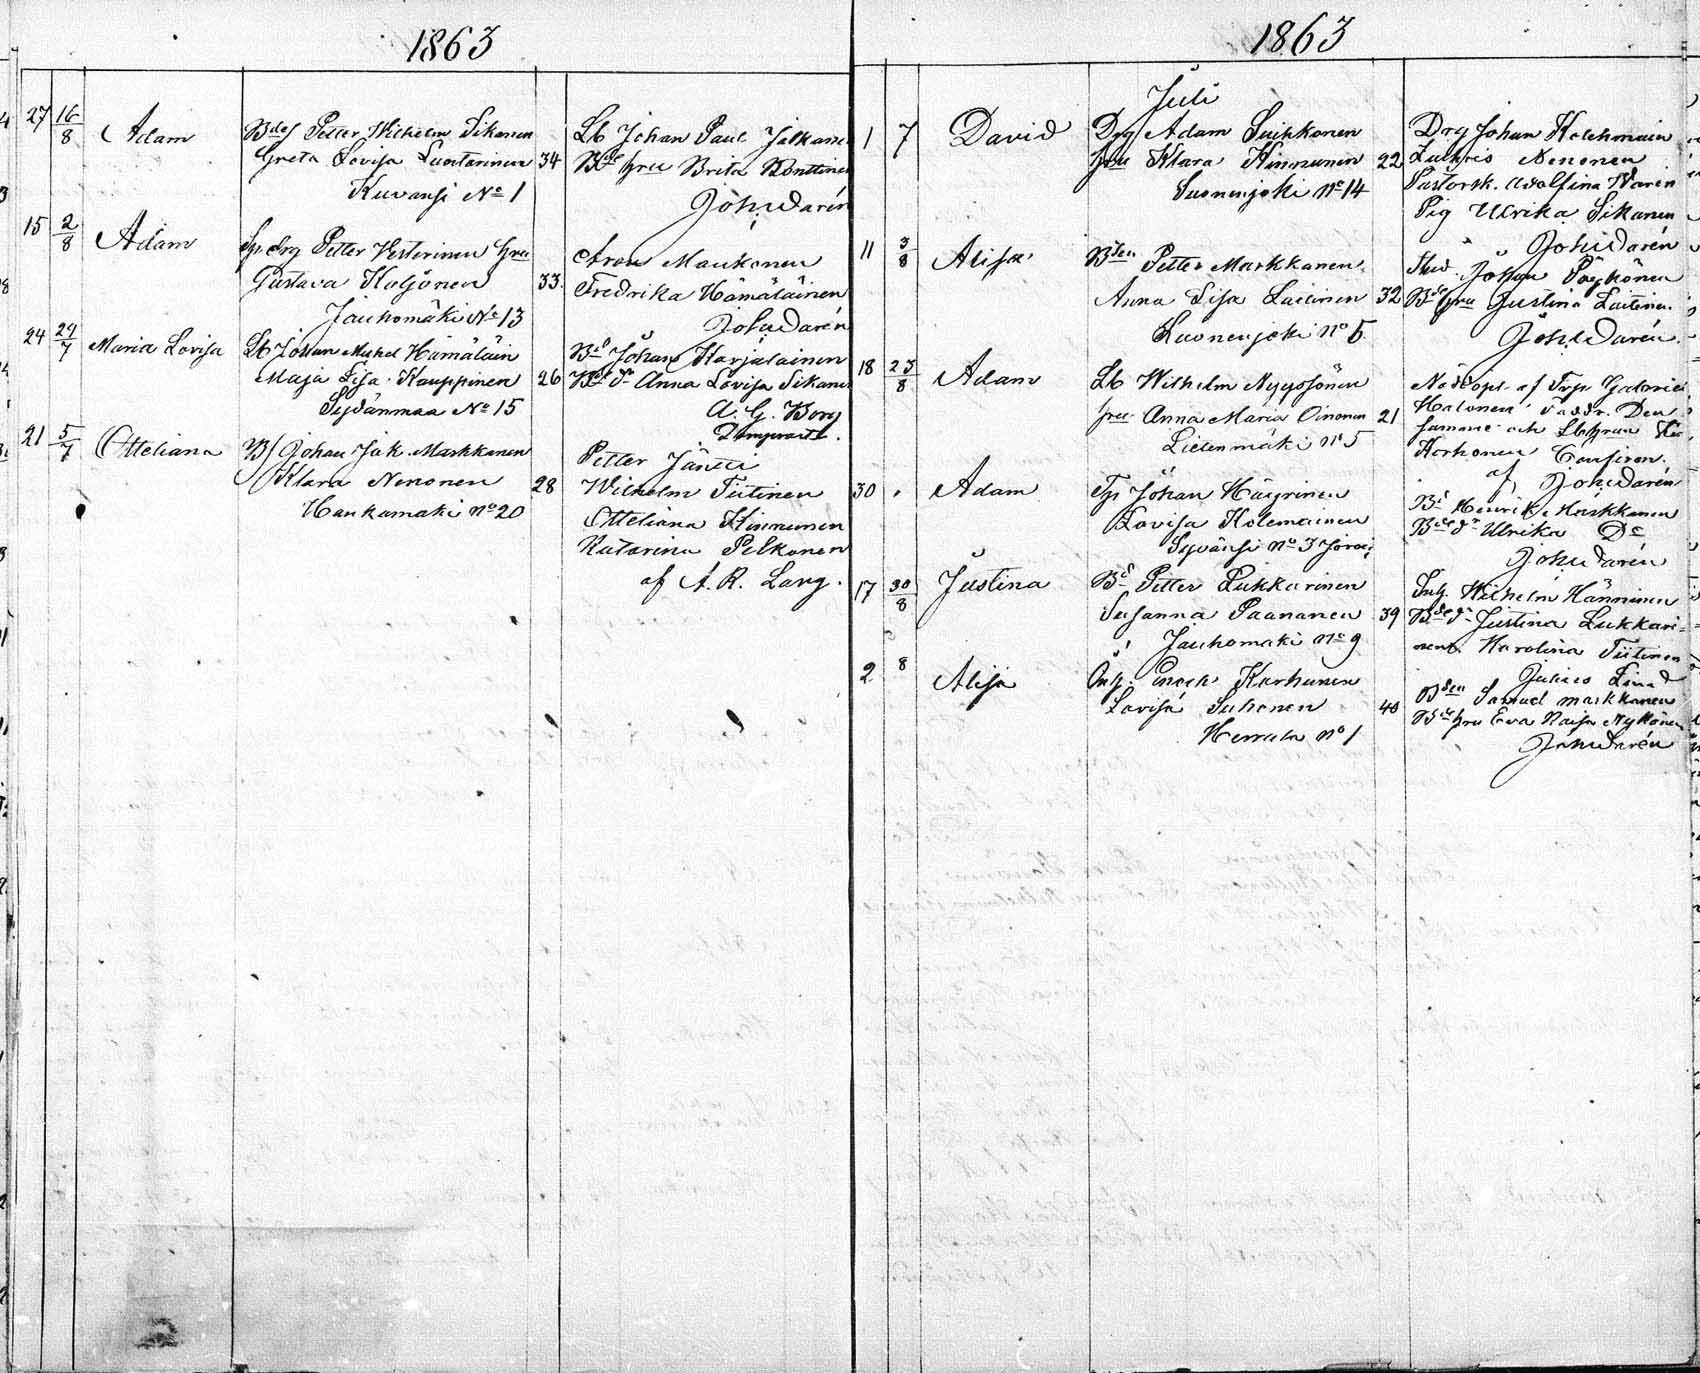 1863
27 16/8 Adam
Petter Wilhelm Sikanen
Greta Lovisa Luostarinen 34
Kuvansi No 1
Lb Johan Paul Jalkanen
Bde hru Brita Konttinen
Joh. Warén
15 2/8 Adam
Petter Vesterinen hru
Gustava Koljonen 33
Jauhomäki No 13
Aron Maukonen
Fredrika Hämäläinen
Joh. Warén
24 29/7 Maria Lovisa
Lb Johan Mikel Hämäläin
Maja Lisa Kauppinen 26
Sydänmaa No 15
Bd Johan Karjalainen
Bde dr Anna Lovisa Sikanen
A. G. Borg
21 5/7 Otteliana
Johan Jak. Markkanen
Klara Nenonen 28
Haukamäki No 20
Petter Jäntti
Wilhelm Tiitinen
Otteliana Kinnunen
Katarina Pelkonen
af A. R. Lang.
1863
Juli
1 7 David
Drg Adam Suihkonen
hru Klara Kinnunen 22
Suonenjoki No 14
Drg Johan Kolehmain
Nenonen
Pastorsk. Adolfina Warén
Pig Ulrika Sikanen
Joh. Warén
11 3/8 Alisa
Bden Petter Markkanen
Anna Lisa Laitinen 32
Suonenjoki No 5
Johan Pöyhönen
Bde hru Justina Laitinen
Joh. Warén
18 23/8 Adam
Lb Wilhelm Nyyssönen
hru Anna Maria Oinonen 21
Lietenmäki No 5
Nöddopt af
Halonen faddr. Den
samme och Lb hrun
Korhonen Confirm.
af Joh. Warén
30 Adam
Johan Häyrinen
Lovisa Kolemainen
Syvänsi No 3
Bd Henrik Markkanen
Bde dr Ulrika Do
Joh. Warén
17 30/8 Justina
Bd Petter Lukkarinen
Susanna Paananen 39
Jauhomäki No 9
Inh. Wilhelm Hänninen
Bde dr Justina Lukkari=
nen. Karolina Tiitinen
Julius Lind
2 8 Alisa
Inh. Enok Karhunen
Lovisa Suhonen 40
Herrala No 1
Bden Samuel Markkanen
Bde hru Eva Kaisa Nykänen
Joh. Warén